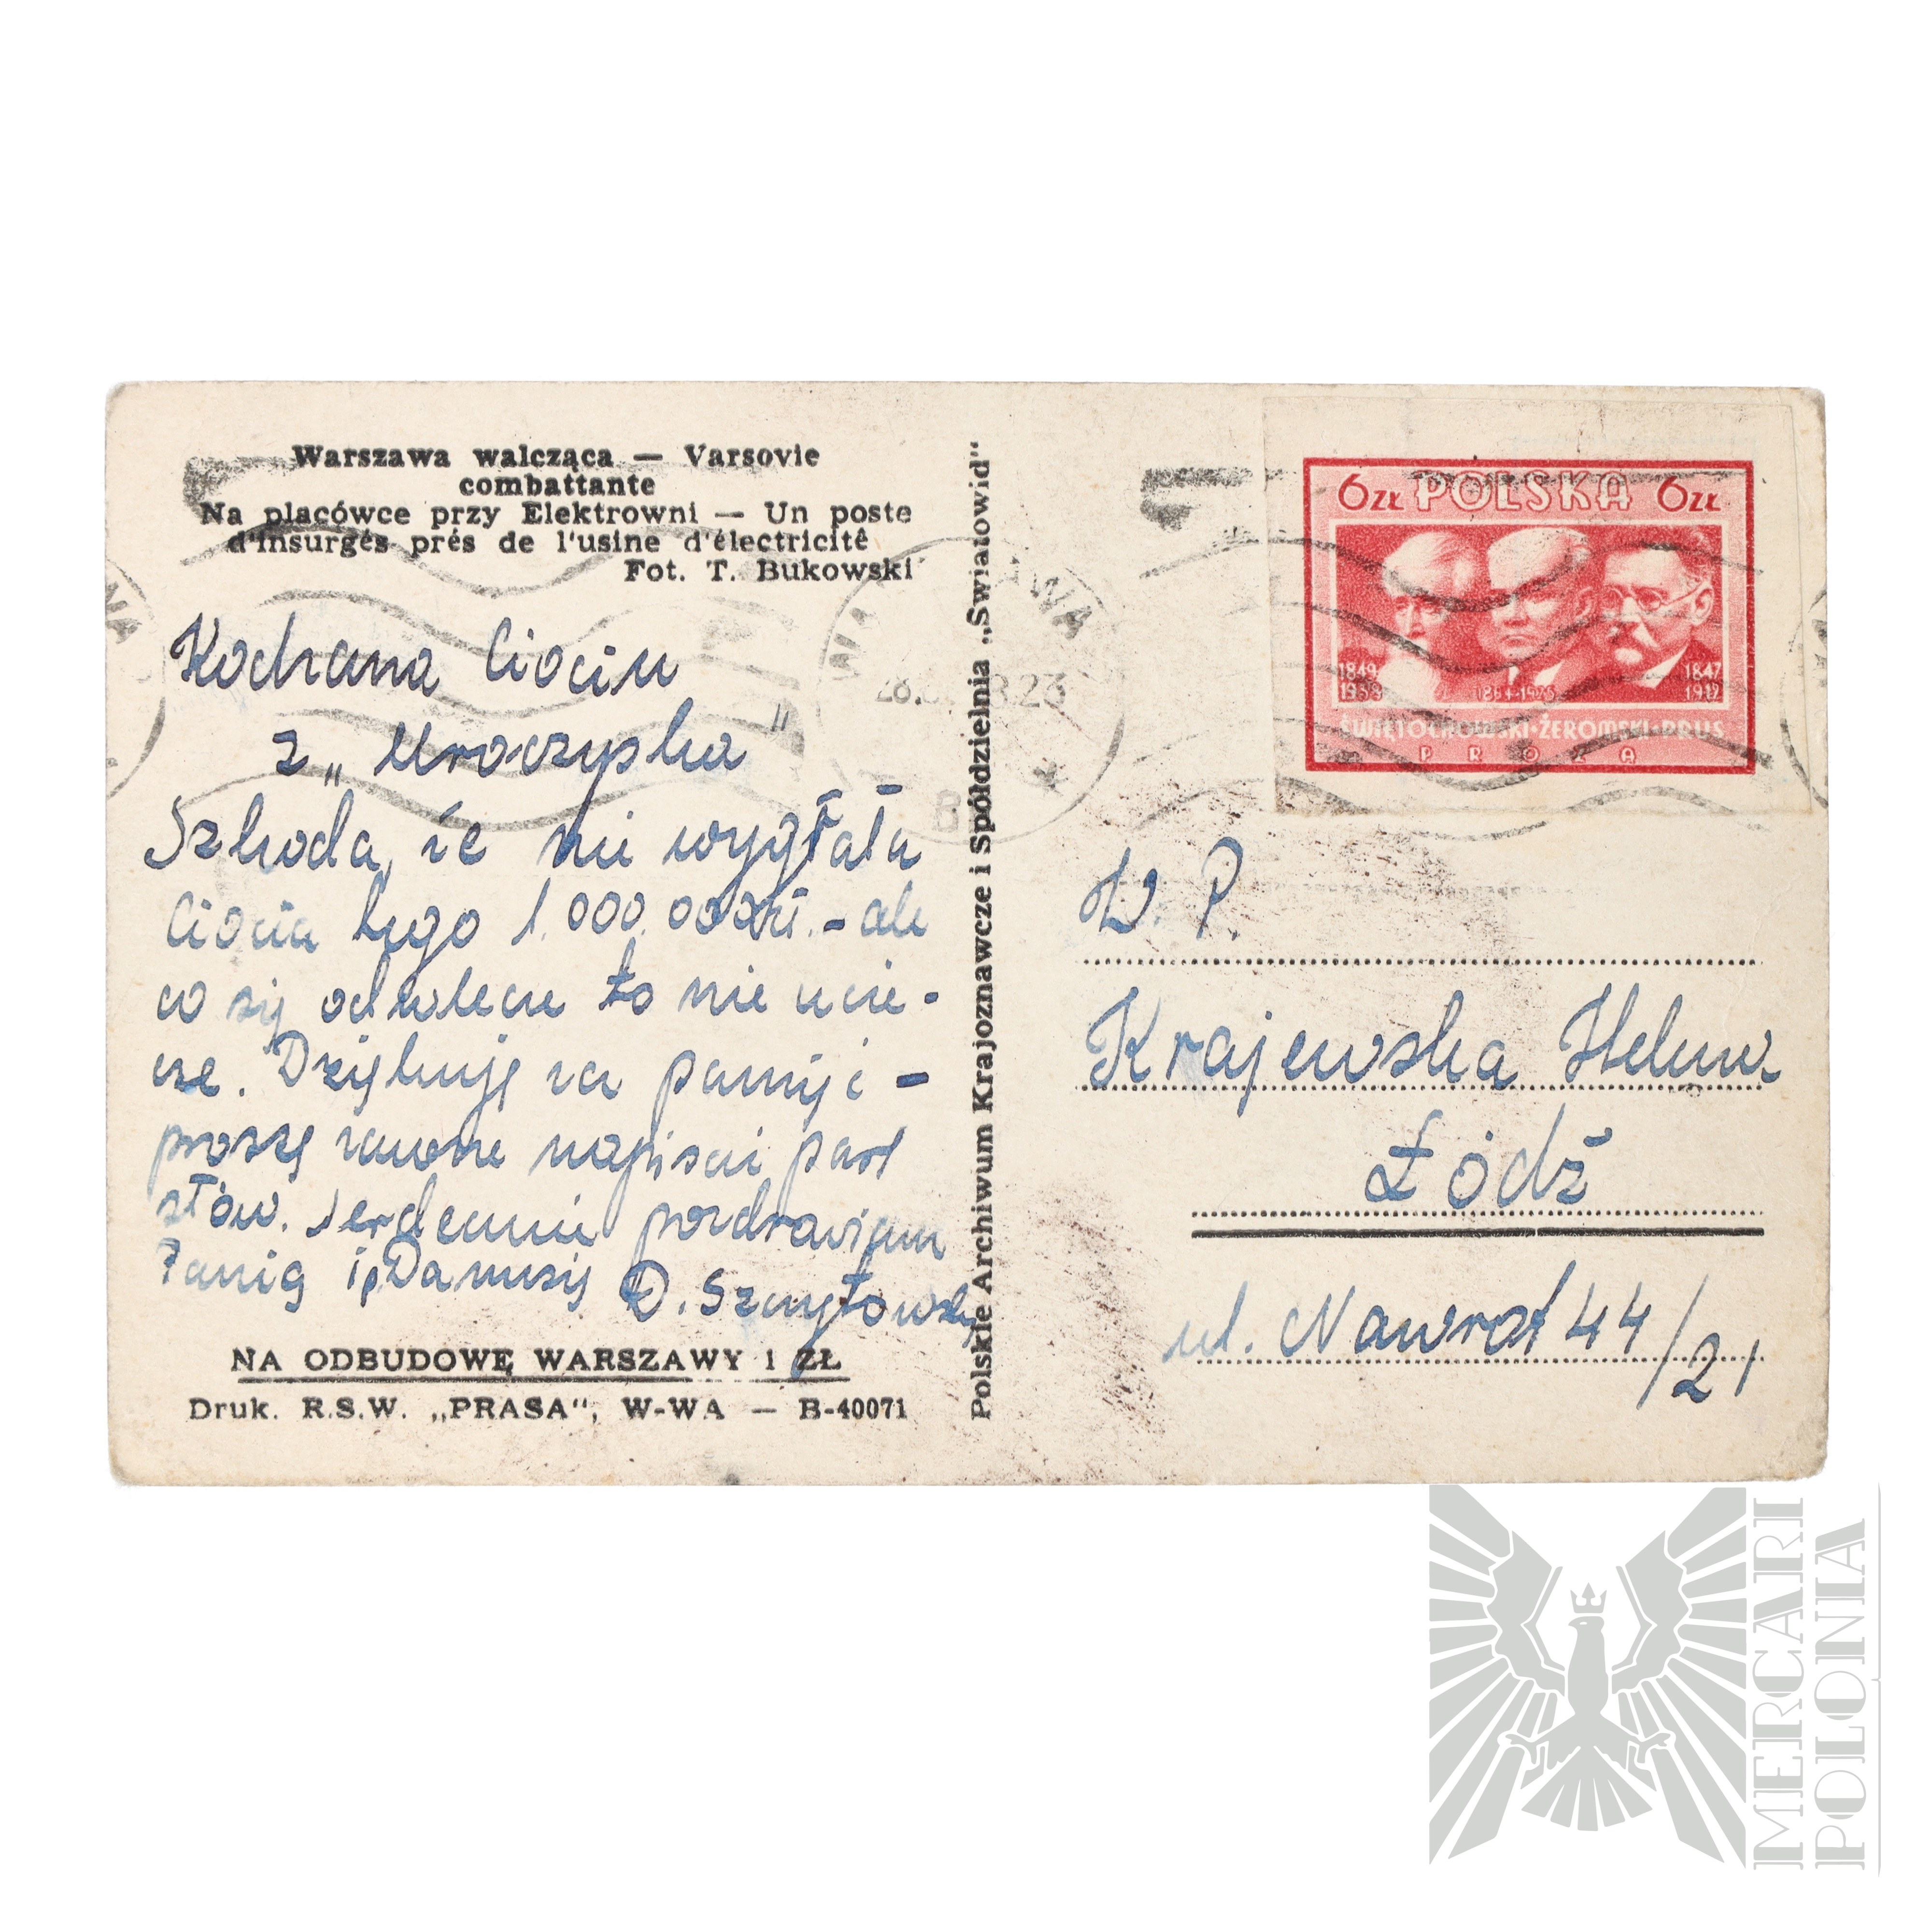 Warszawa walcząca — Varsovie
combattante
Na placówce przy Elektrowni — Un poste
d'insurgés prés de l'usine d'électricitê
Fot. T. Bukowski
Kochana Ciociu
z „Uroczyska"
Szkoda, że nie wygrała
Ciocia tego 1.000.000 zł. - ale
co się odwlecze to nie ucie-
cze. Dziękuję za pamięć -
proszę zawsze napisać parę
słów. Serdecznie pozdrawiam
Panią i p. Danusię D. Szmytow
NA ODBUDOWĘ WARSZAWY 1 ZŁ
Druk. R.S.W. „PRASA", W-WA — B-40071
Polskie Archiwum Krajoznawcze i Spółdzielnia „Światowid"
6ZŁ POLSKA 6ZŁ
1849
1938
1864-1925
1847
1912
ŚWIĘTOCHOWSKI·ŻEROMSKI·PRUS
PROZA
W. P.
Krajewska Helena
Łódź
ul. Nawrot 44/21
MERCARI
POLONIA